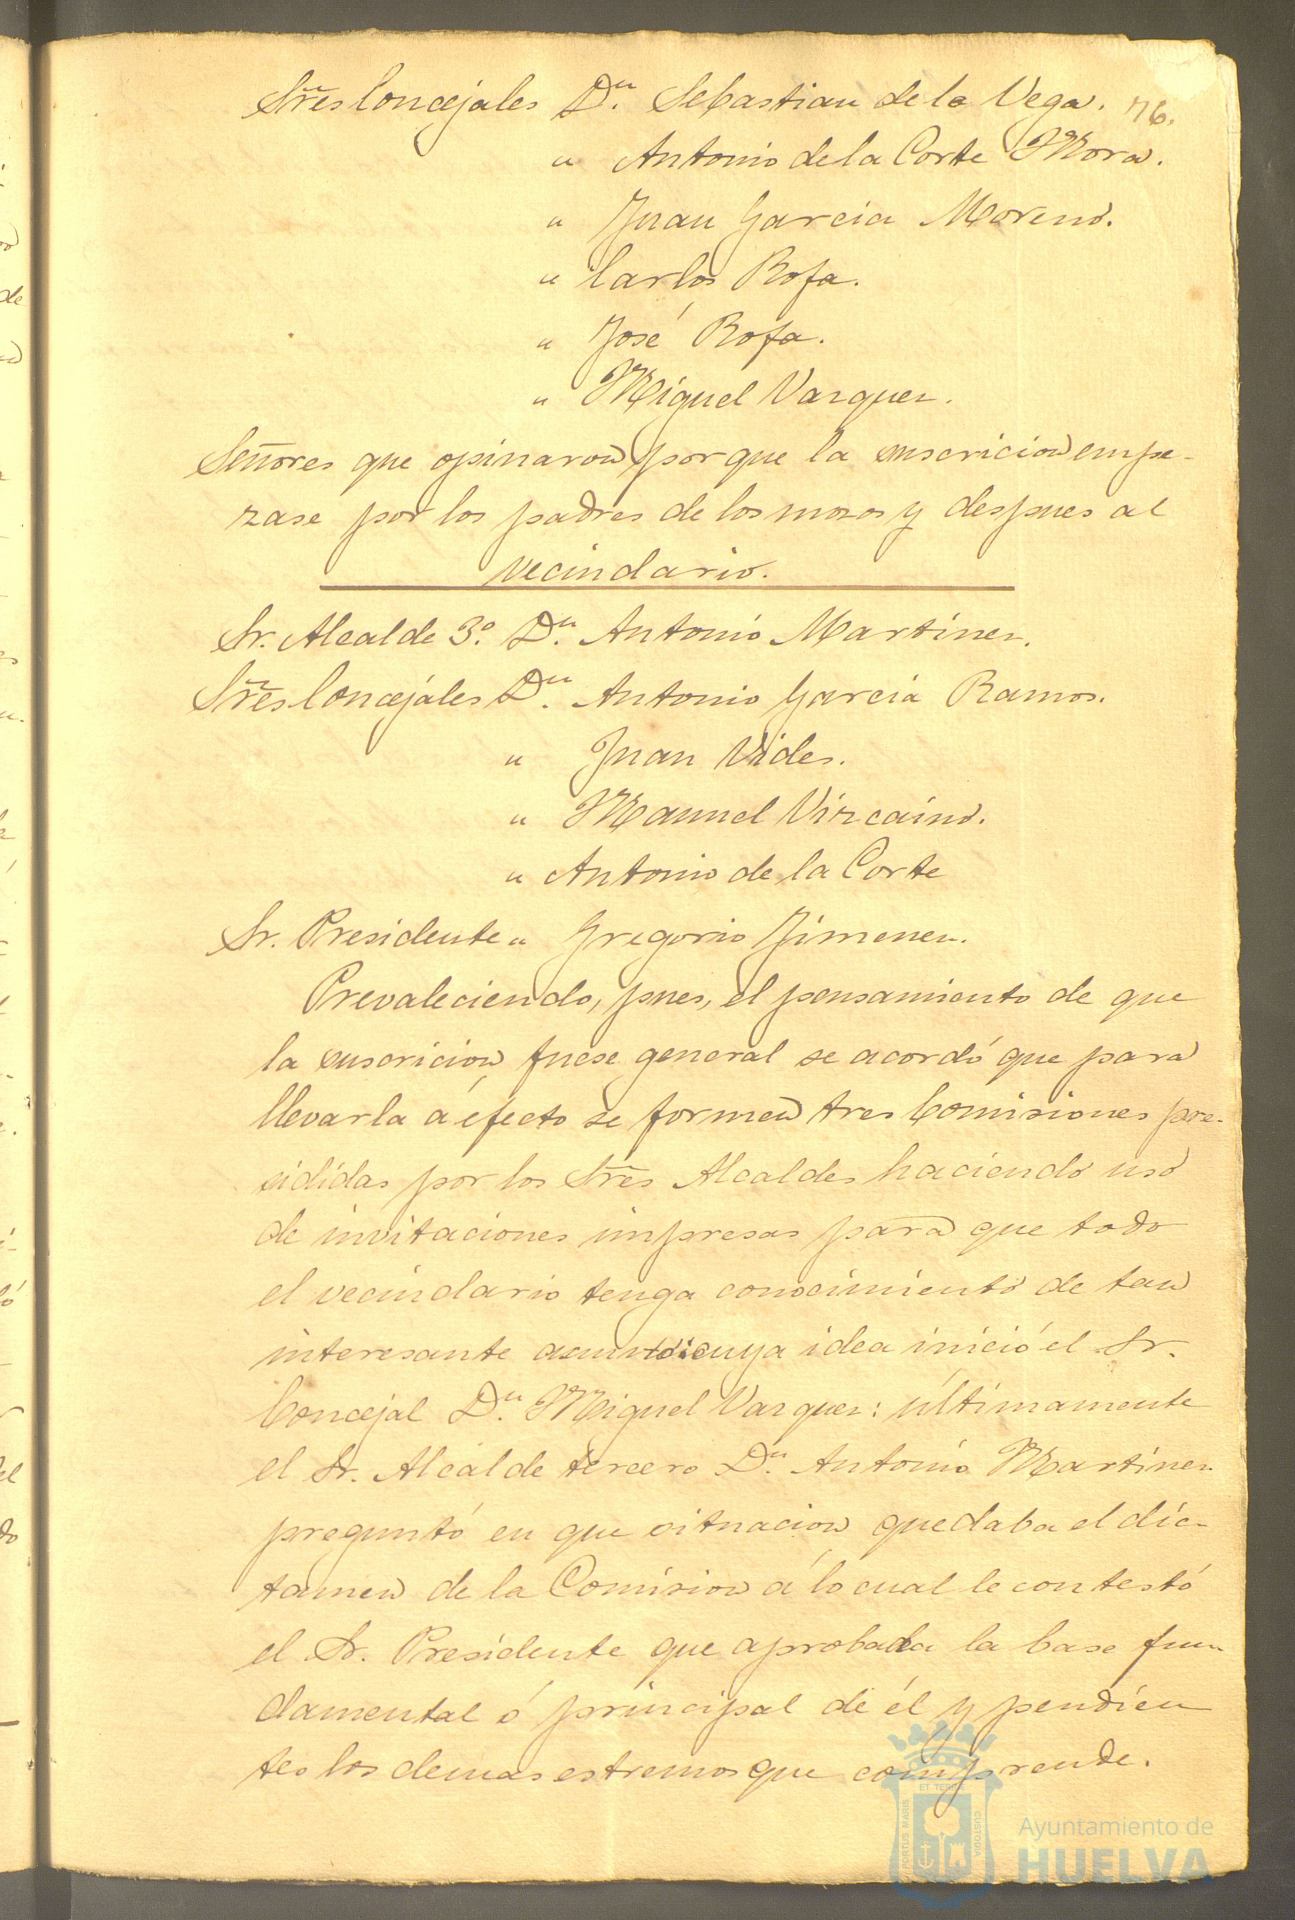 Sres Concejales Dn. Sebastian de la Vega. 76.
" Antonio de la Corte Mora.
" Juan Garcia Moreno.
" Carlos Rofa.
" José Rofa.
" Miguel Vazquez.
Señores que opinaron porque la suscricion empe-
zase por los padres de los mozos y despues al
vecindario.
Sr. Alcalde 3º. Dn. Antonio Martinez.
Sres Concejales Dn. Antonio Garcia Ramos.
" Juan Vides.
" Manuel Vizcaino.
" Antonio de la Corte
Sr. Presidente " Gregorio Jimenez.
Prevaleciendo, pues, el pensamiento de que
la suscricion fuese general se acordó que para
llevarla á efecto se formen tres Comisiones pre-
sididas por los Sres Alcaldes haciendo uso
de invitaciones impresas para que todo
el vecindario tenga conocimiento de tan
interesante asunto cuya idea inició el Sr.
Concejal Dn. Miguel Vazquez: últimamente
el Sr. Alcalde tercero Dn. Antonio Martinez
preguntó en que situacion quedaba el dic-
tamen de la Comision á lo cual le contestó
el Sr. Presidente que aprobada la base fun-
damental ó principal de él y pendien
tes los demas estremos que comprende.
PORTUS MARIS ET TERRE CUSTODIA
Ayuntamiento de
HUELVA